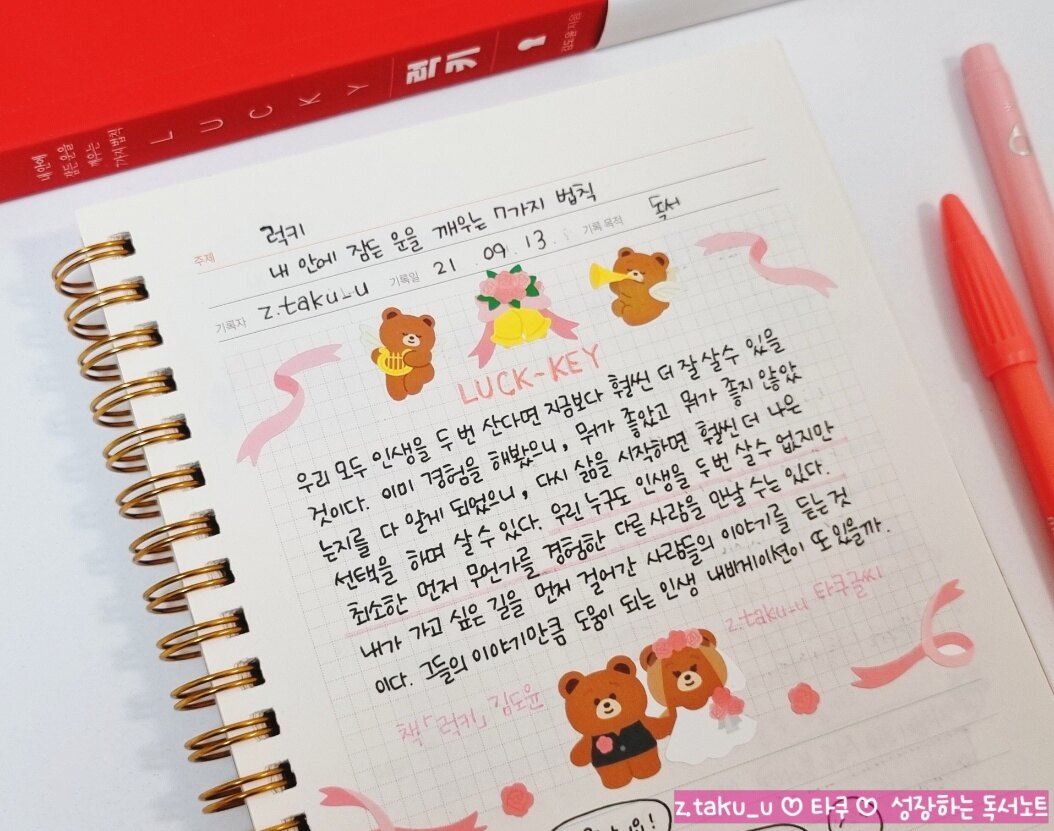 내 안에
잠든 운을
깨우는
7가지 법칙
LUCKY
럭키
주제
럭키
내 안에 잠든 운을 깨우는 7가지 법칙
기록자 z.taku_u 기록일 21 09. 13. 기록 목적 독서
LUCK-KEY
우리 모두 인생을 두 번 산다면 지금보다 훨씬 더 잘 살 수 있을
것이다. 이미 경험을 해봤으니, 뭐가 좋았고 뭐가 좋지 않았
는지를 다 알게 되었으니, 다시 삶을 시작하면 훨씬 더 나은
선택을 하며 살 수 있다. 우린 누구도 인생을 두 번 살 수 없지만
최소한 먼저 무언가를 경험한 다른 사람을 만날 수는 있다.
내가 가고 싶은 길을 먼저 걸어간 사람들의 이야기를 듣는 것
이다. 그들의 이야기만큼 도움이 되는 인생 내비게이션이 또 있을까.
z.taku_u 타쿠글씨
책 「럭키」 김도윤
z.taku_u ♡ 타쿠 ♡ 성장하는 독서노트